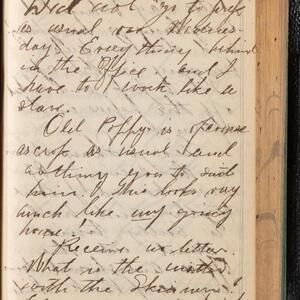 Did not go to press
as usual on Wednes-
day. Everything behind
in the Office and I
have to work like a
slave.
Old Poppy is of course
as cross as usual and
nothing goes to suit
him. This looks very
much like my going
home!
Receive no letters.
What is the matter
with the